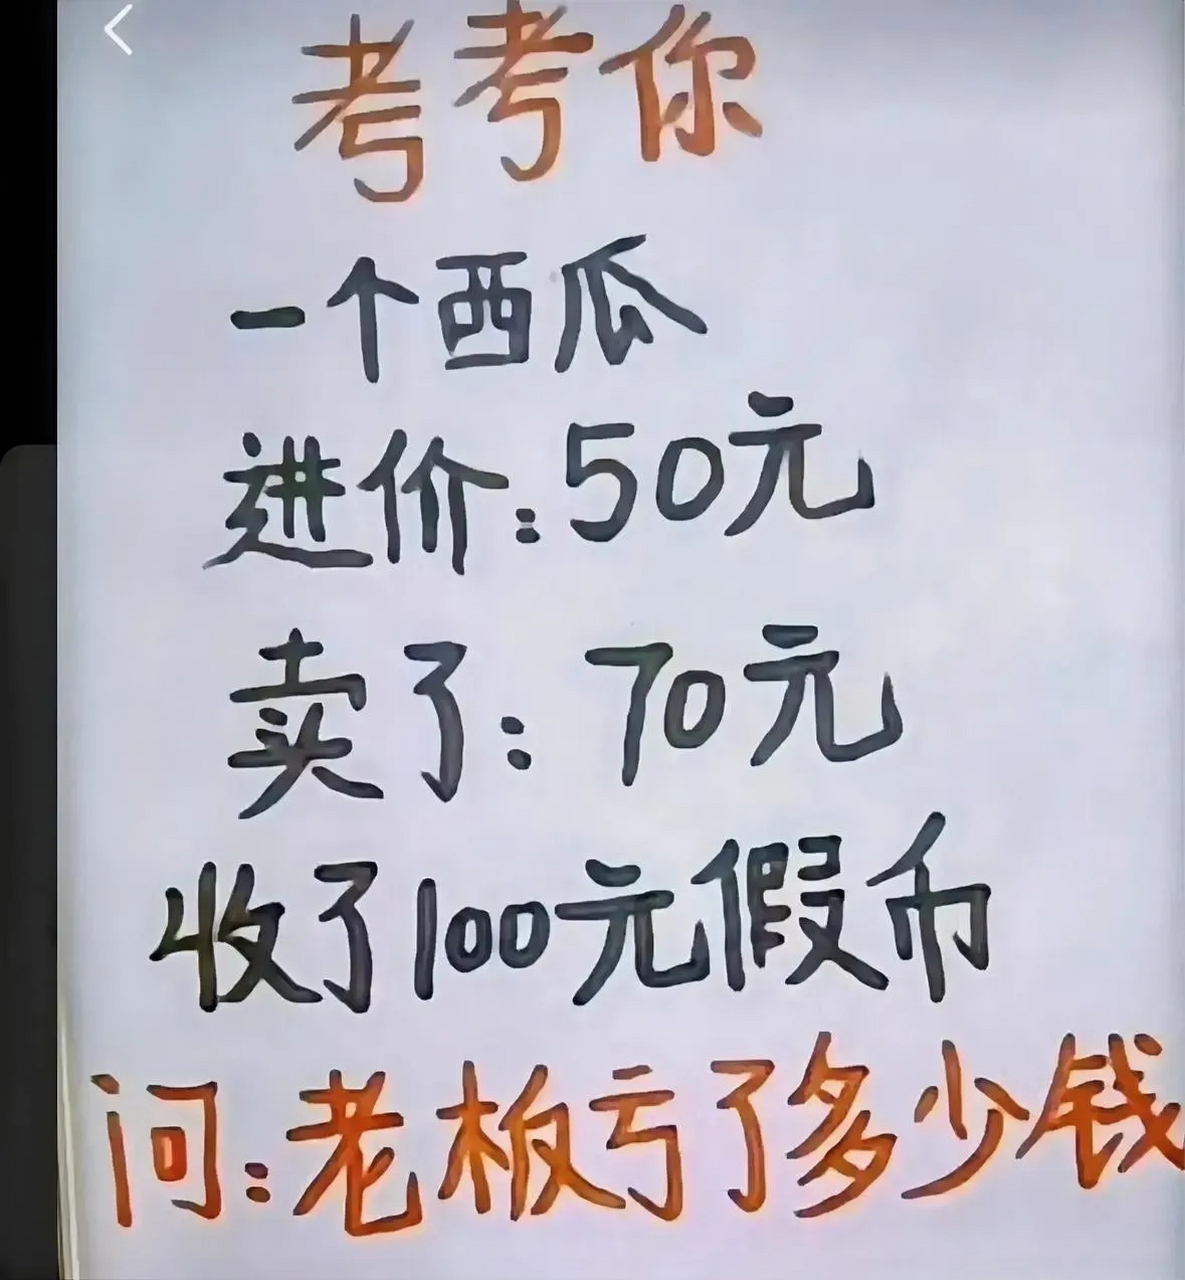 考考你
一个西瓜
进价:50元
卖了:70元
收了100元假币
问:老板亏了多少钱